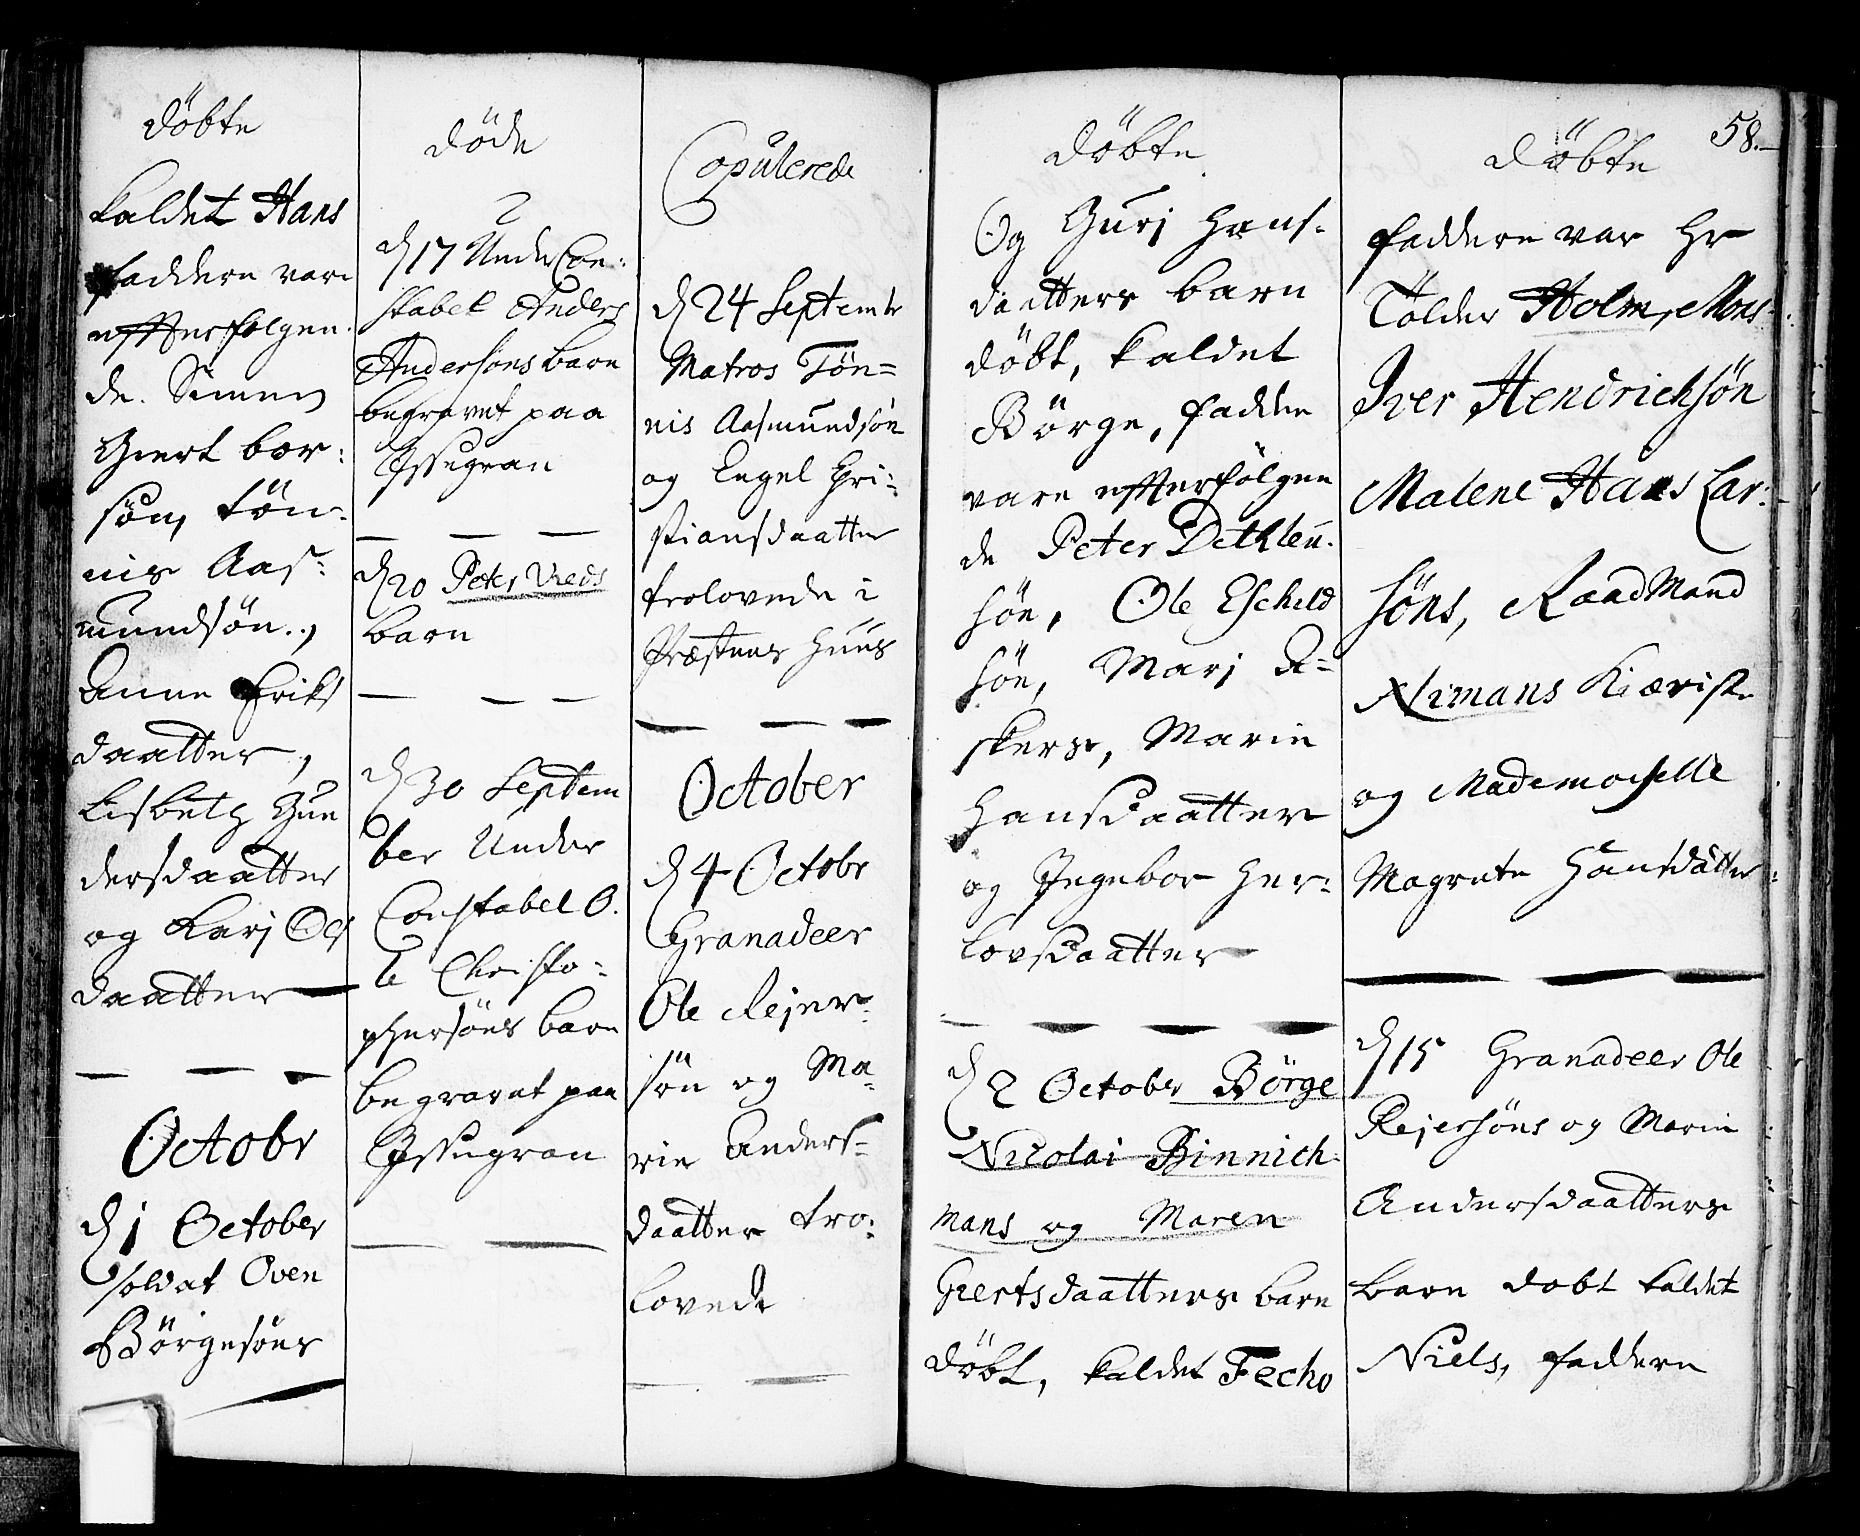 döbte
kaldet Hans
faddere vare
effterfølgen
de. Simen
Giert bor:
søn, Tön-
nis Aas-
mundsøn.,
Anne Eriks
daatter,
Lisbeth Gun
dersdaatter
og Karj Ols
daatter
Octobr
d 1 October
soldat Oven
Börgesøns
döde
d 17 Under Con:
stabel Anders
Andersons barn
begravet paa
d 20 Peter Vieds
barn
d 30 Septem
ber Under
Constabel O.
le Christo-
phersøns barn
begravet paa
Copulerede
d 24 Septembr
Matros Tön=
nis Aasmundsøn
og Engel Chri-
stiansdaatter
trolovede i
Præstens Huus
October
d 4 Octobr
Granadeer
Ole Rejer-
søn og Ma-
rie Anders-
daatter tro-
lovede
döbte
Og Gurj Hans-
daatters barn
döbt, kaldet
Börge, fadder
vare effterfölgen
de Peter Dethleu-
søn, Ole Eschild
søn, Marj A=
skers, Marie
Hansdaatter
og Ingebor Her-
lovsdaatter
d 2 Octobr Börge
Nicolai Binnich-
mans og Maren
Giertsdaatters barn
döbt, kaldet Fecho
58.
döbte
faddere var Hr
Tolder Holm, Mons-
Iver Hendrichsøn
Malene Hans Lar-
söns, RaadMand
Nimans Kiæriste
og Mademoiselle
Magrete Hansdatter
d 15 Granadeer Ole
Rejersöns og Marie
Andersdaatters
barn dobt kaldet
Niels, faddere